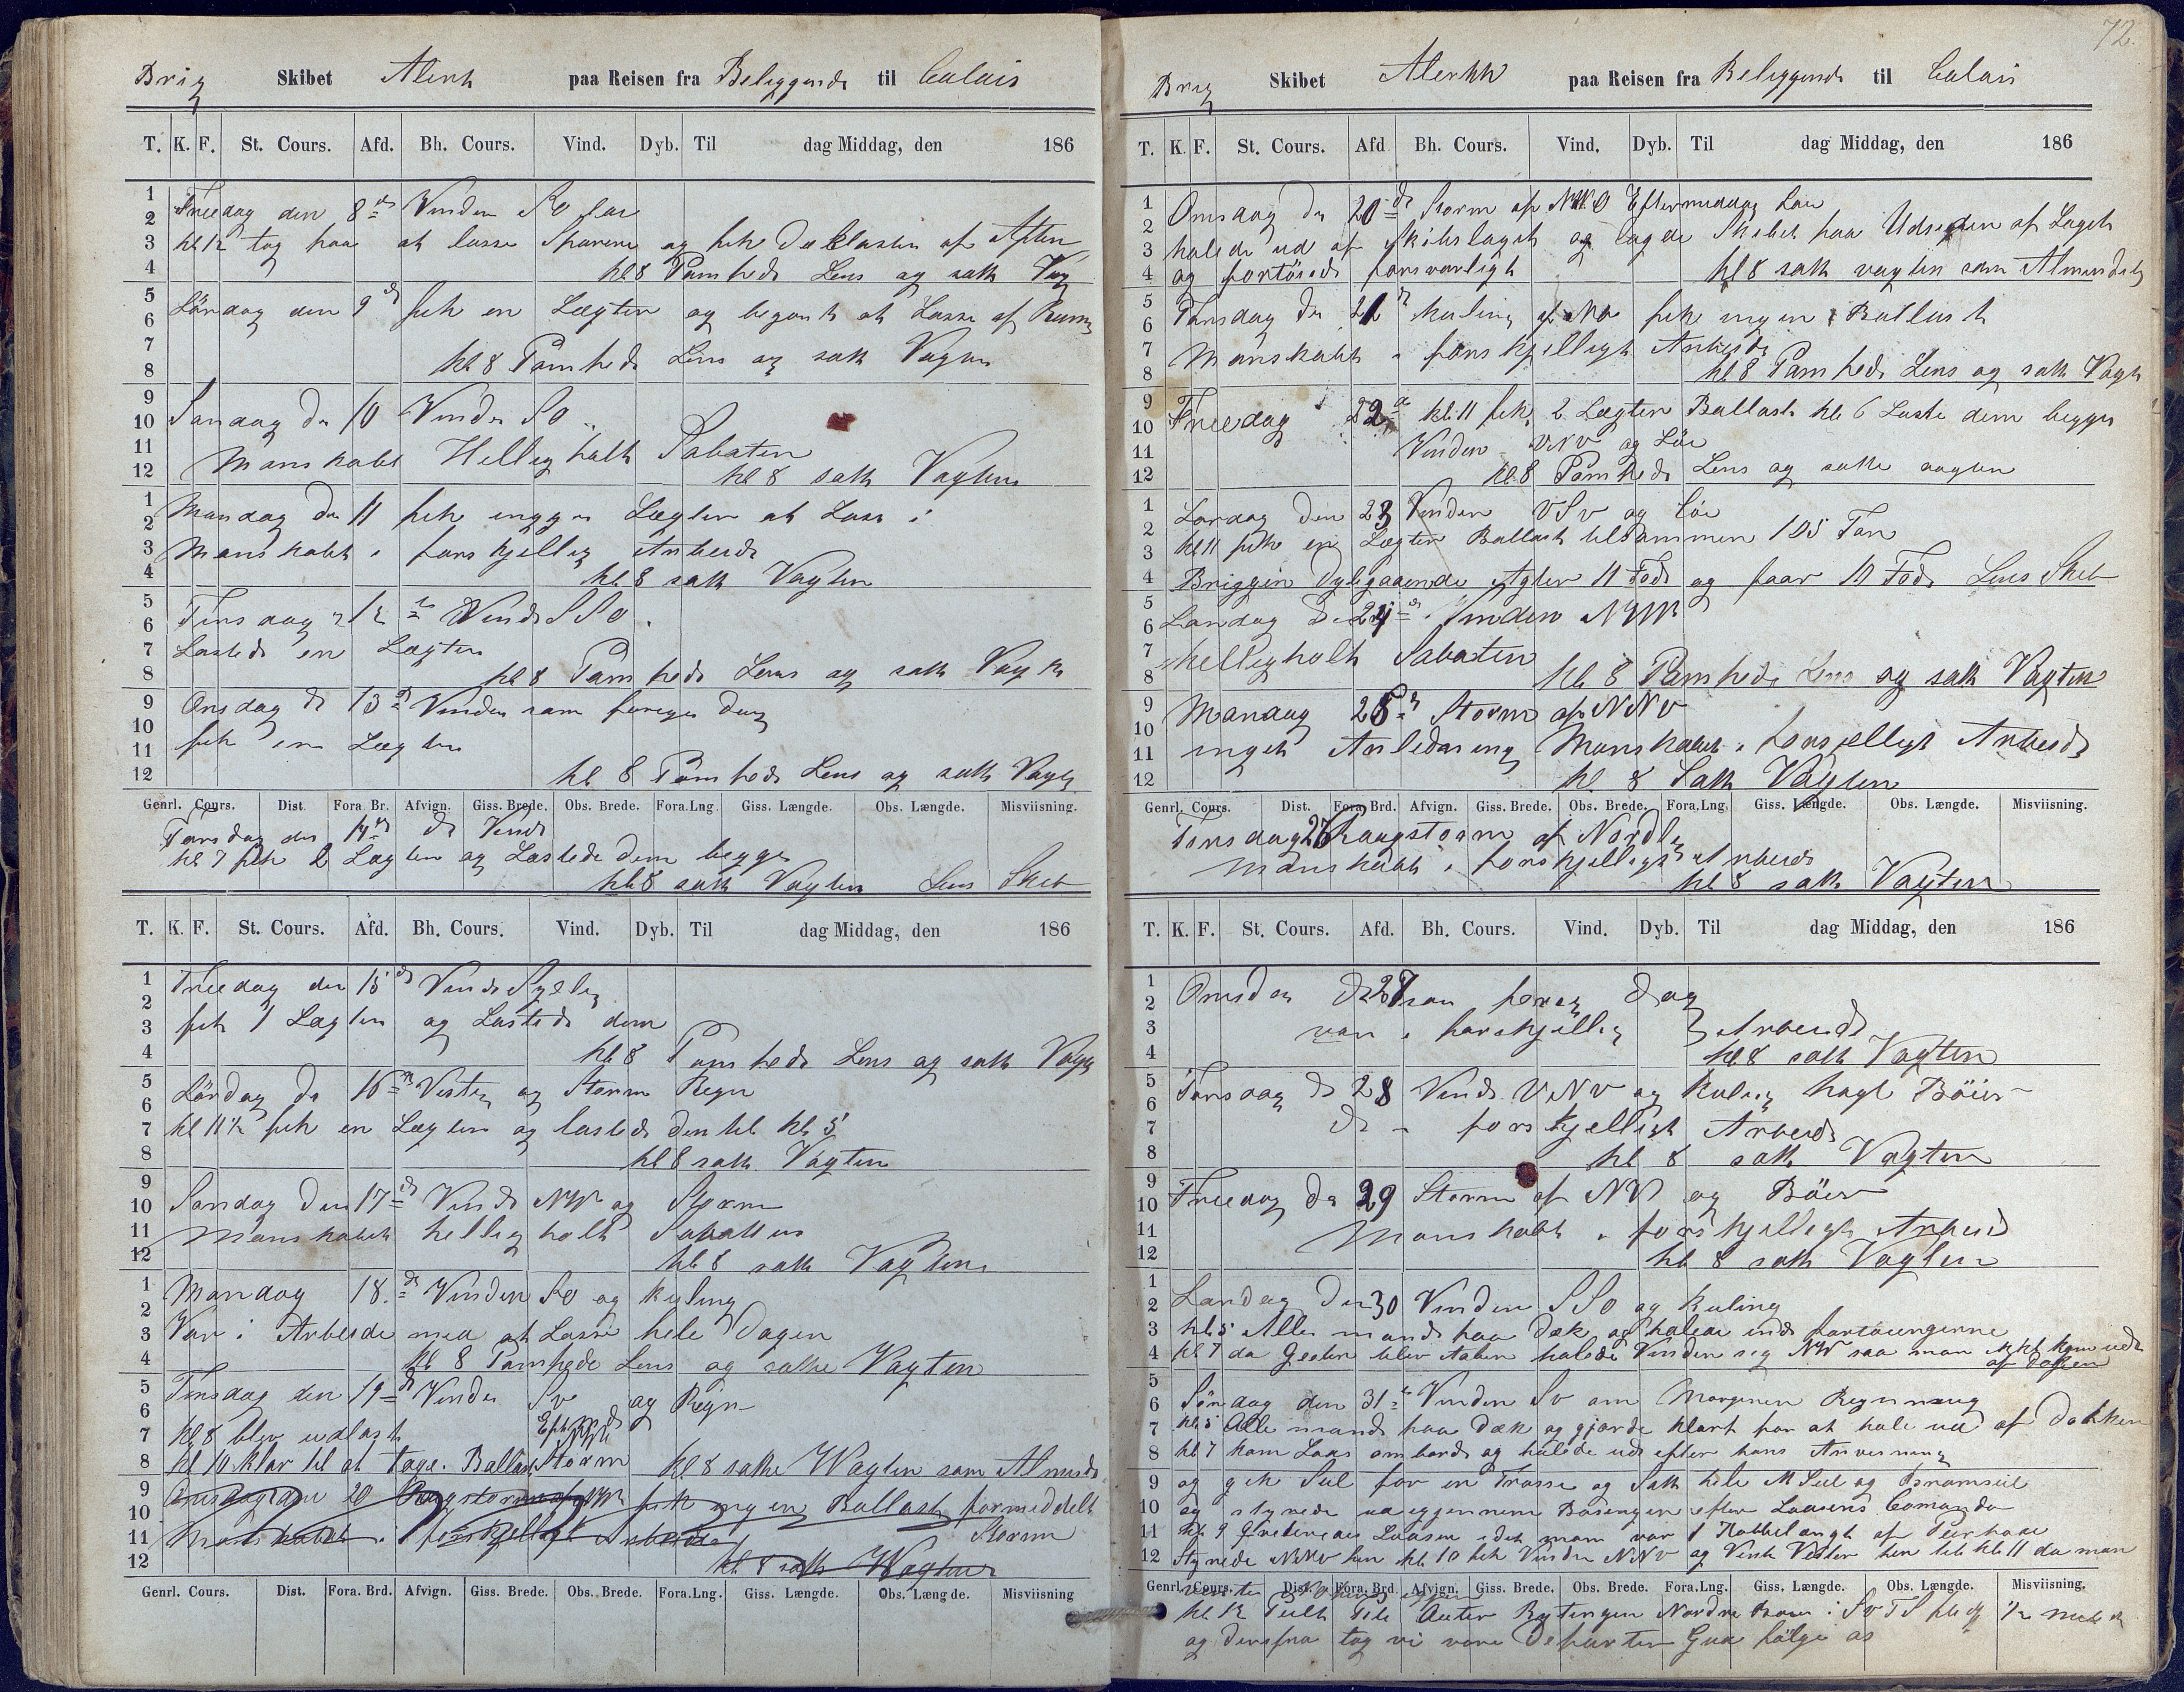 Brig Skibet Alert paa Reisen fra Beliggende til Calais
T. K. F. St. Cours. Afd. Bh. Cours. Vind. Dyb. Til dag Middag, den 186
1 2 3 4 5 6 7 8 9 10 11 12
1 2 3 4 5 6 7 8 9 10 11 12
Freedag den 8de Vinden So
kl 12 tog paa at losse Sparene og fik Dækslasten af Aften
kl 8 Pomhede Lens og satte Vag
Lördag den 9de fik en Lægter og begont at Losse af Rum
kl 8 Pomhede Lens og satte Vagten
Sondag de 10 Vinden So
Manskabet Helligholt Sabaten
kl 8 satte Vagten
Mandag de 11 fik ingen Lægter at Losse i
Manskabet i forskjellig Arbeide
kl 8 satte Vagten
Tirsdag 12 Vinde SSo
Lastede en Lægter
kl 8 Pomhede Lens og satte Vagte
Onsdag d 13de Vinden som forrige dag
fik en Lægter
kl 8 Pomhede Lens og satte Vagte
Genrl. Cours. Dist. Fora Br. Afvign. Giss. Brede. Obs. Brede. Fora.Lng. Giss. Længde. Obs. Længde. Misviisning.
Torsdag den 14de do Vind
kl 7 fik 2 Lægter og Lastede dem begge
kl 8 satte Vagten Lens Skib
T. K. F. St. Cours. Afd. Bh. Cours. Vind. Dyb. Til dag Middag, den 186
1 2 3 4 5 6 7 8 9 10 11 12
1 2 3 4 5 6 7 8 9 10 11 12
Freedag den 15de Vinde Sydlig
fik 1 Lægter og Lastede dem
kl 8 Pomhede Lens og satte Vagte
Lördag de 16de Vestlig og Storm Regn
kl 11½ fik en Lægter og lastede den til kl 5
kl 8 satte Vagten
Sondag den 17de Vinde NW og Storm
Manskabet hellig holt Sabatten
kl 8 satte Vagten
Mandag 18de Vinden So og Kuling
Var i Arbeide med at Losse hele Dagen
kl 8 Pomhede Lens og satte Vagten
Tirsdag den 19de Vinden Sv og Regn
kl 8 blev udlast
kl 10 klar til at tage Ballast Storm kl 8 satte Wagten som Almind
Onsdag den 20 fik ingen Ballast formeddelt
Manskabet i forskjelligt Arbeide Storm
kl 8 satte Wagten
Genrl. Cours. Dist. Fora. Brd. Afvign. Giss. Brede. Obs. Brede. Fora.Lng. Giss. Længde. Obs. Længde. Misviisning
72.
Brig Skibet Alertt paa Reisen fra Beliggende til Calais
T. K. F. St. Cours. Afd Bh. Cours. Vind. Dyb. Til dag Middag, den 186
1 2 3 4 5 6 7 8 9 10 11 12
1 2 3 4 5 6 7 8 9 10 11 12
Onsdag de 20de Storm af NNO Eftermiddag
halede ud af Skibslaget og lagde Skibet paa Udsiden af Laget
og fortöiede forsvarligt kl 8 satte vagten som Almindeli
Torsdag de 21 Kuling af No fik ingen Ballast
Manskabet i forskjelligt Arbeide
kl 8 Pomhede Lens og satte Vagt
Freedag 22de kl 11 fik 2 Lægter Ballast kl 6 Laste dem begge
Vinden VNV og Löi
kl 8 Pomhede Lens og satte vagten
Lordag den 23 Vinden VSv og Löi
kl 11 fik en Lægter Ballast tilsammen 105 Ton
Briggen Dybgaaende Agter 11 Fod og faar 10 Fod Lens Skib
Sondag d 24de Vinden NW
Helligholt Sabaten kl 8 Pomhede Lens og satte Vagten
Mandag 25de Storm af NNV
inget Anledning Manskabet i forsjelligt Arbeide
kl 8 Satte Vagten
Genrl. Cours. Dist. Fora. Brd. Afvign. Giss. Brede. Obs. Brede. Fora.Lng. Giss. Længde. Obs. Længde. Misviisning.
Tirsdag 26 Haugstorm af Nordlig
Manskabet i forskjelligt Arbeide
kl 8 satte Vagten
T. K. F. St. Cours. Afd. Bh. Cours. Vind. Dyb. Til dag Middag, den 186
1 2 3 4 5 6 7 8 9 10 11 12
1 2 3 4 5 6 7 8 9 10 11 12
Onsdag d 27 som forrig dag
var i forskjellig Arbeide
kl 8 satte Vagten
Torsdag d 28 Vinde VNV og Kuling hagl Böier
do i forskjelligt Arbeide
kl 8 satte Vagten
Freedag de 29 Storm af NV og Böier
Manskabet i forskjelligt Arbeid
kl 8 satte Vagten
Lordag den 30 Vinden SSo og Kuling
kl 5 Alle mand paa Dæk og halede ind fortöiningerne
kl 7 da Geeten blev Aaben halede Vinden sig NW saa man ikke kom ud
af dokken
Söndag den 31te Vinden So om Morgenen Regn
kl 5 Alle mand paa Dæk og gjorde klart for at hale ud af Dokken
kl 7 kom Lods ombord og halede ud efter hans Anvisning
og gik Seil for en Trosse og Satte hele M Seil og Bramseil
og styrede ud igjennem efter Loasens Comando
kl 9 Loasen idet man var 1 Kabbelængt af
Styrede NNW hen kl 10 fik Vinden NNV og Vente Vester hen til kl 11 da man
Genrl. Cours. Dist. Fora. Brd. Afvign. Giss. Brede. Obs. Brede. Fora.Lng. Giss. Længde. Obs. Længde. Misviisning.
kl 12 Peilt Nordre i So T S ½ Miil
og derefra tog vi vore Departer Gud fölge os